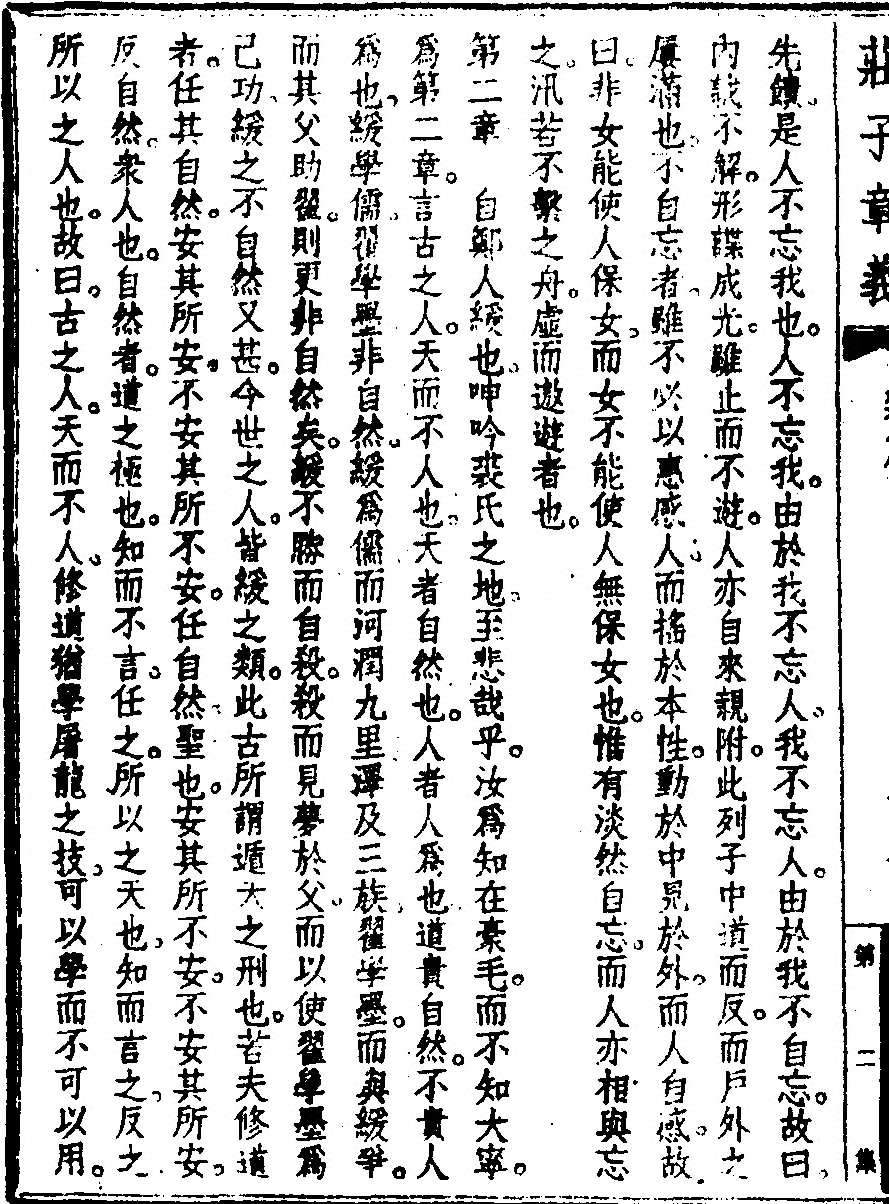 莊子章義
第二集
先饋。是人不忘我也。人不忘我。由於我不忘人。我不忘人。由於我不自忘。故曰。
內誠不解。形諜成光。雖止而不遊。人亦自來親附。此列子中道而反。而戶外之
屨滿也。不自忘者。雖不必以惠感人。而搖於本性。動於中見於外。而人自感。故
曰。非女能使人保女。而女不能使人無保女也。惟有淡然自忘。而人亦相與忘
之。汎若不繫之舟。虛而遨遊者也。
第二章　自鄭人緩也。呻吟裘氏之地。至悲哉乎。汝為知在豪毛。而不知大寧。
為第二章。言古之人。天而不人也。天者自然也。人者人為也。道貴自然。不貴人
為也。緩學儒。翟學墨。非自然。緩為儒而河潤九里。澤及三族。翟學墨。而與緩爭。
而其父助翟。則更非自然矣。緩不勝而自殺。殺而見夢於父。而以使翟學墨為
己功。緩之不自然又甚。今世之人。皆緩之類。此古所謂遁天之刑也。若夫修道
者。任其自然。安其所安。不安其所不安。任自然。聖也。安其所不安。不安其所安。
反自然。眾人也。自然者。道之極也。知而不言。任之。所以之天也。知而言之。反之
所以之人也。故曰。古之人。天而不人。修道猶學屠龍之技。可以學而不可以用。